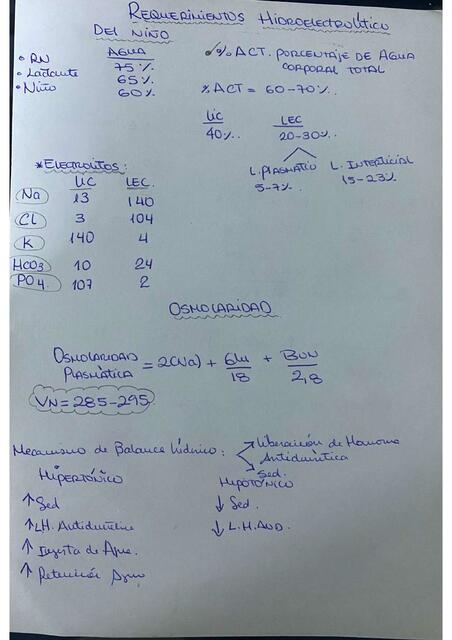 REQUERIMIENTOS HIDROELECTROLÍTICO
DEL NIÑO
AGUA
• RN 75%
• Lactante 65%
• Niño 60%
% ACT. PORCENTAJE DE AGUA
CORPORAL TOTAL
% ACT = 60-70%.
LIC LEC
40%. 20-30%.
L. PLASMATICO L. INTERTICIAL
5-7% 15-23%
* ELECTROLITOS:
LIC LEC.
Na 13 140
Cl 3 104
K 140 4
HCO3 10 24
PO4 107 2
OSMOLARIDAD
OSMOLARIDAD PLASMÁTICA = 2(Na) + Glu/18 + BUN/2,8
VN = 285-295
Mecanismo de Balance hídrico: Liberación de Hormona
Antidiurética
Sed.
HIPERTÓNICO HIPOTÓNICO
↑ Sed ↓ Sed.
↑ LH. Antidiurética ↓ L.H.AND.
↑ Ingesta de Agua.
↑ Retención Agua